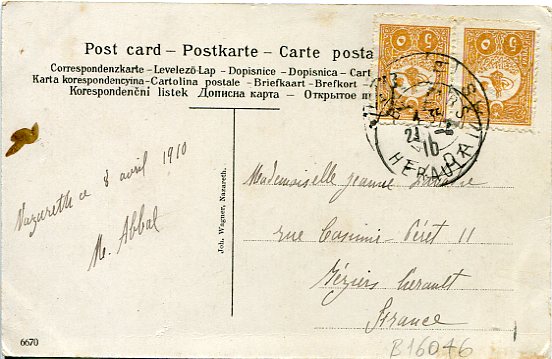 Post card – Postkarte – Carte posta
Correspondenzkarte – Levelező-Lap – Dopisnice – Dopisnica – Cart
Karta korespondencyjna – Cartolina postale – Briefkaart – Brefkort –
Korespondenční listek – Дописна карта – Открытое
5
5
HERAULT
Nazareth ce 8 avril 1910
M. Abbal
Joh. Wagner, Nazareth.
Mademoiselle Jeanne
rue Casimir Péret 11
Béziers Herault
France
6670
B16046